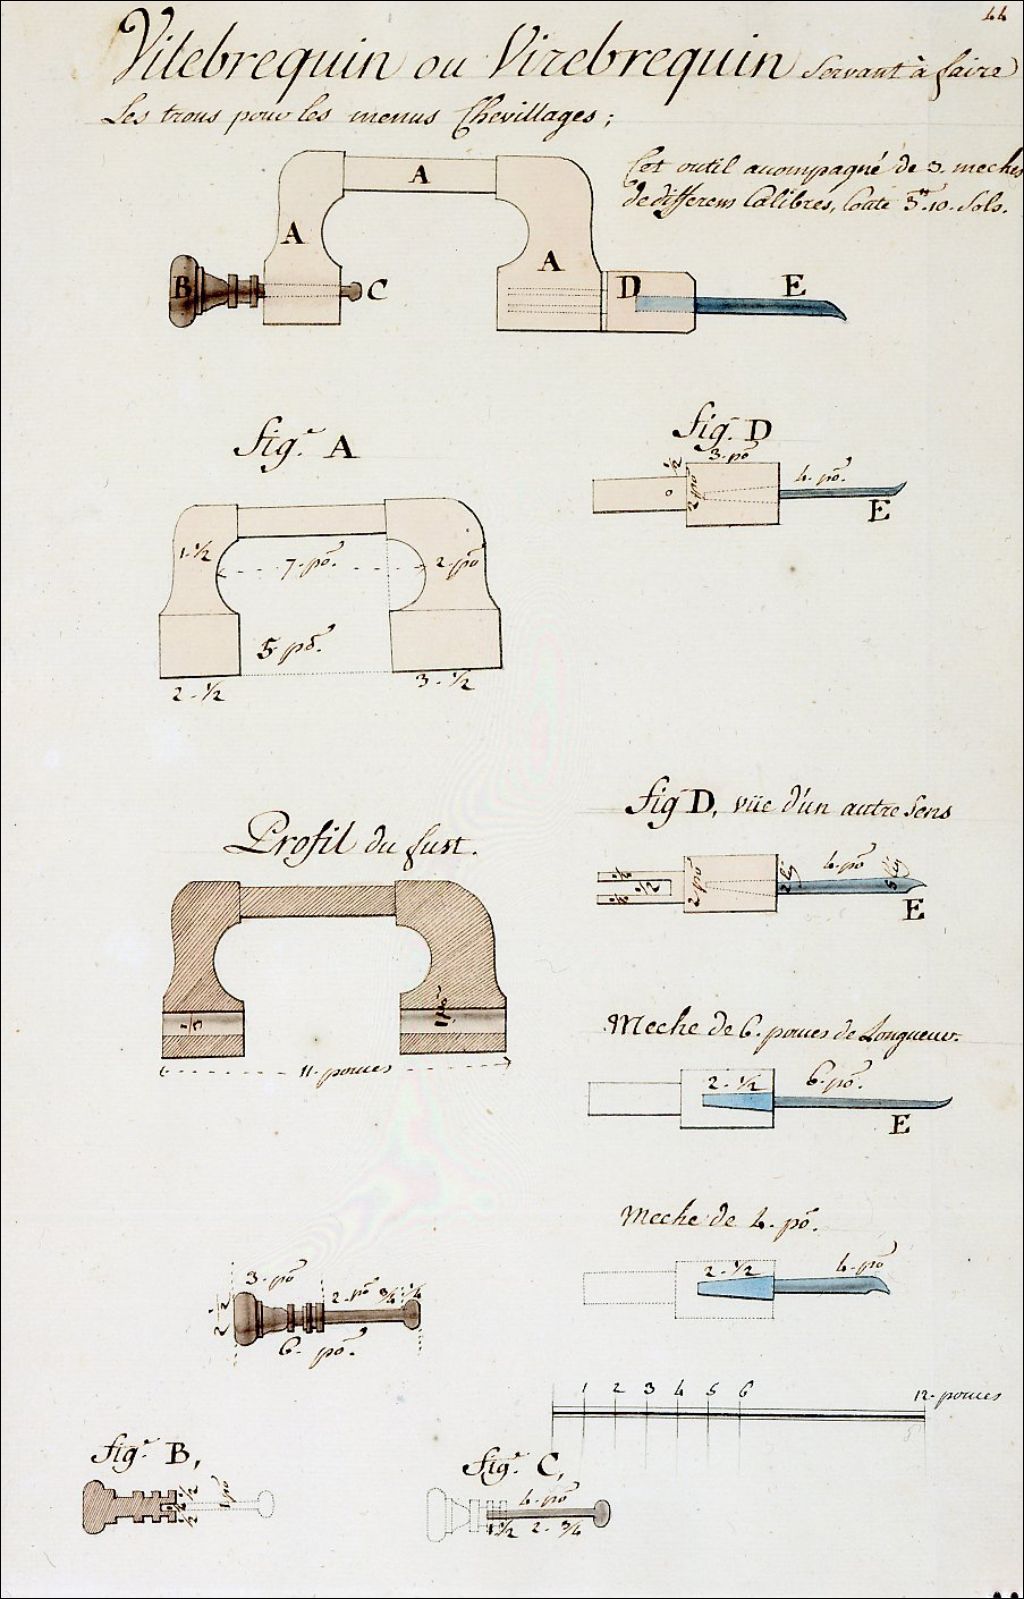 44
Vilebrequin ou Virebrequin Servant à faire
Les trous pour les menus Chevillages;
Cet outil acompagné de 3. meches
de differens Calibres, Coute 3.tt 10. Sols.
A
A
A
B
C
D
E
fig.e A
1-1/2
7. po.
2. po
5 po.
2-1/2
3-1/2
fig. D
3. po
1/2
2 po
4. po.
E
Profil du fust.
1/3
11. pouces
fig D, vüe d'un autre Sens
2 po
4. po
E
Meche de 6. pouces de Longueur.
2-1/2
6. po.
E
Meche de 4. po.
2-1/2
4. po
3. po
2. po
3/4
1/4
2 1/2
6. po.
1 2 3 4 5 6
12. pouces
fig.e B,
1 po
fig.e C,
4. po
1 1/2
2. 3/4